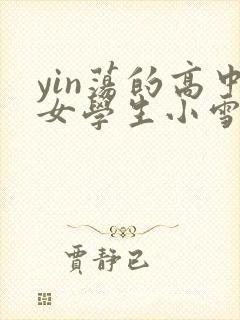 yin蕩的高中
女學生小雪
賈靜已